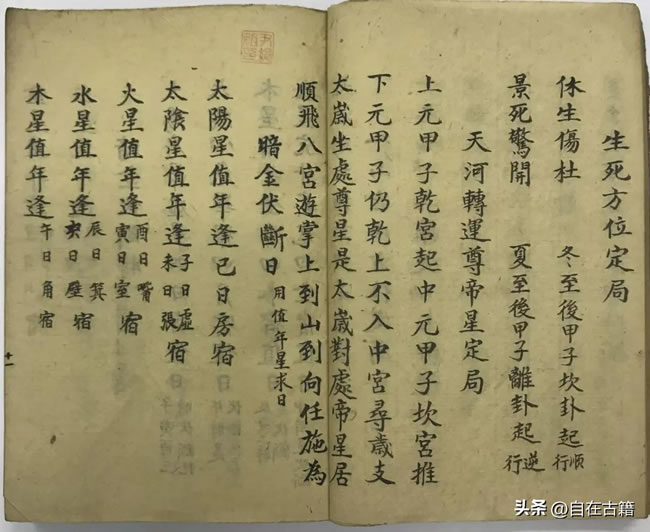 生死方位定局
休生傷杜 冬至後甲子坎卦起順行
景死驚開 夏至後甲子離卦起逆行
天河轉運尊帝星定局
上元甲子乾宮起中元甲子坎宮推
下元甲子仍乾上不入中宮尋歲支
太歲坐處尊星是太歲對處帝星居
順飛八宮遊掌上到山到向任施為
暗金伏斷日 用值年星求日
太陽星值年逢巳日房宿
太陰星值年逢子日虛未日張宿
火星值年逢酉日嘴寅日室宿
水星值年逢辰日箕亥日壁宿
木星值年逢午日角宿
十一
头条 @自在古籍